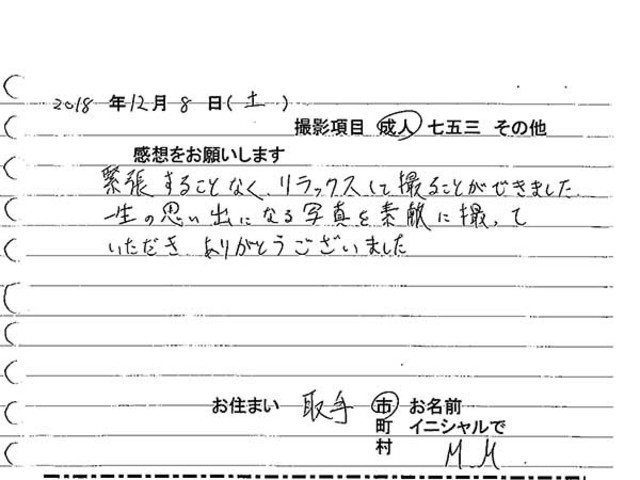 2018 年 12 月 8 日(土)
撮影項目 成人 七五三 その他
感想をお願いします
緊張することなく、リラックスして撮ることができました
一生の思い出になる写真を素敵に撮って
いただき ありがとうございました
お住まい 取手 市 お名前
町 イニシャルで
村 M.M